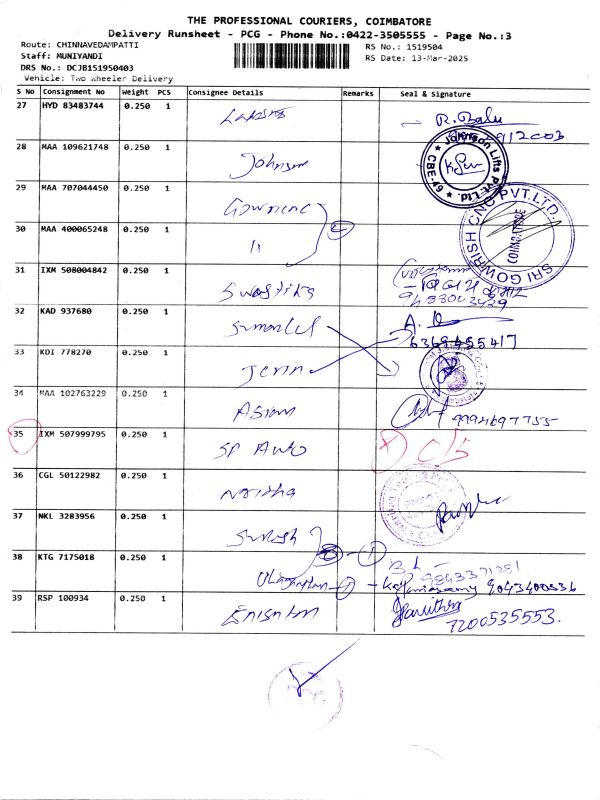 THE PROFESSIONAL COURIERS, COIMBATORE
Delivery Runsheet - PCG - Phone No.:0422-3505555 - Page No.:3
Route: CHINNAVEDAMPATTI
RS No.: 1519504
Staff: MUNIYANDI
RS Date: 13-Mar-2025
DRS No.: DCJB151950403
Vehicle: Two Wheeler Delivery
S No Consignment No Weight PCS Consignee Details Remarks Seal & Signature
27 HYD 83483744 0.250 1 R. Balu
28 MAA 109621748 0.250 1 Johnson Johnson Lifts Pvt. Ltd. CBE-49
29 MAA 707044450 0.250 1
30 MAA 400065248 0.250 1 11 SRI GOWRISH CNC PVT.LTD. COIMBATORE
31 IXM 508004842 0.250 1 Swastika
32 KAD 937680 0.250 1
6369455417
33 KDI 778270 0.250 1 Jerin
34 MAA 102763229 0.250 1 Asian 9994697755
35 IXM 507999795 0.250 1 SP Auto C/S
36 CGL 50122982 0.250 1
37 NKL 3283956 0.250 1 Suresh
38 KTG 7175018 0.250 1 9843371281
9043400536
39 RSP 100934 0.250 1 Pavithra
7200535553.